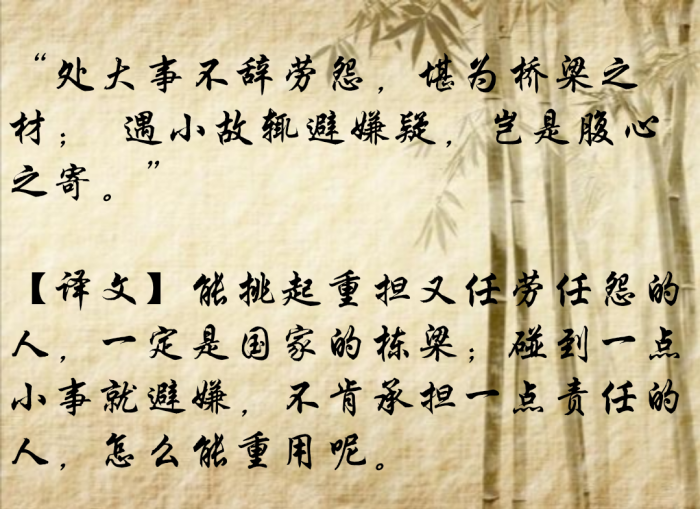 “处大事不辞劳怨，堪为桥梁之
材； 遇小故辄避嫌疑，岂是腹心
之寄。”
【译文】能挑起重担又任劳任怨的
人，一定是国家的栋梁；碰到一点
小事就避嫌，不肯承担一点责任的
人，怎么能重用呢。